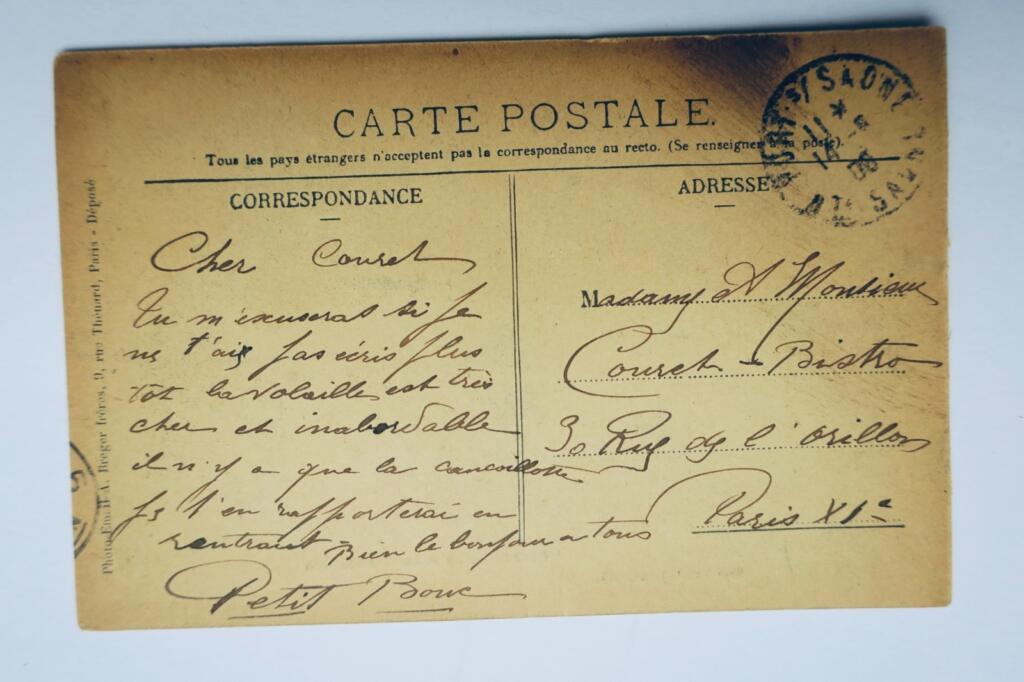 CARTE POSTALE.
Tous les pays étrangers n'acceptent pas la correspondance au recto. (Se renseigner à la poste).
CORRESPONDANCE
Cher Couret
Tu m'excuseras si je
ne t'ais pas écris plus
tot la volaille est très
cher et inabordable
il n'y a que la cancoillotte
je t'en rapporterai en
rentrant Bien le bonjour a tous
Petit Bouc
ADRESSE
Madame et Monsieur
Couret - Bistro
30 Rue de l'Orillon
Paris XIe
S/SAONE
11 *
Hte SAONE
Photo-Email A. Breger frères, 9, rue Thénard, Paris - Déposé